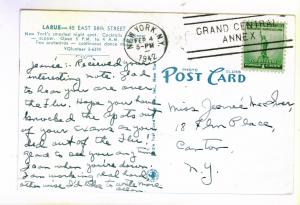 LARUE—45 EAST 58th STREET
New York's smartest night spot. Cocktails
Open 5 P.M. to
Two orchestras — continuous dance
VOlunteer 5-6295
NEW YORK, N.Y.
FEB 4
5-PM
1942
GRAND CENTRAL
ANNEX
POST CARD
Jeanie: Received your
interesting note. Glad
to hear you are over
the Flu. Hope you have
knocked the spots out
of your exams as you
did out of the Flu. I'll be
glad to see you any
time when you're down.
Am working real hard
other wise I'd like to write more
often.
Miss Jeanie
18 Elm Place,
Canton
N.Y.